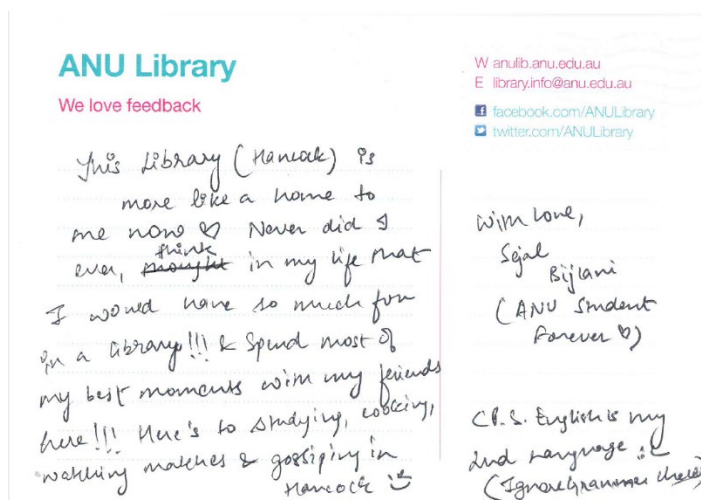 ANU Library
We love feedback
W anulib.anu.edu.au
E library.info@anu.edu.au
facebook.com/ANULibrary
twitter.com/ANULibrary
This Library (Hancock) is
more like a home to
me now ♡ Never did I
think
ever, thought in my life that
I would have so much fun
in a library!!! & Spend most of
my best moments with my friends
here!!! Here's to studying, cooking,
watching matches & gossiping in
Hancock
With Love,
Sejal
Bijlani
(ANU Student
Forever ♡)
(P.S. English is my
2nd Language
(Ignore Grammer